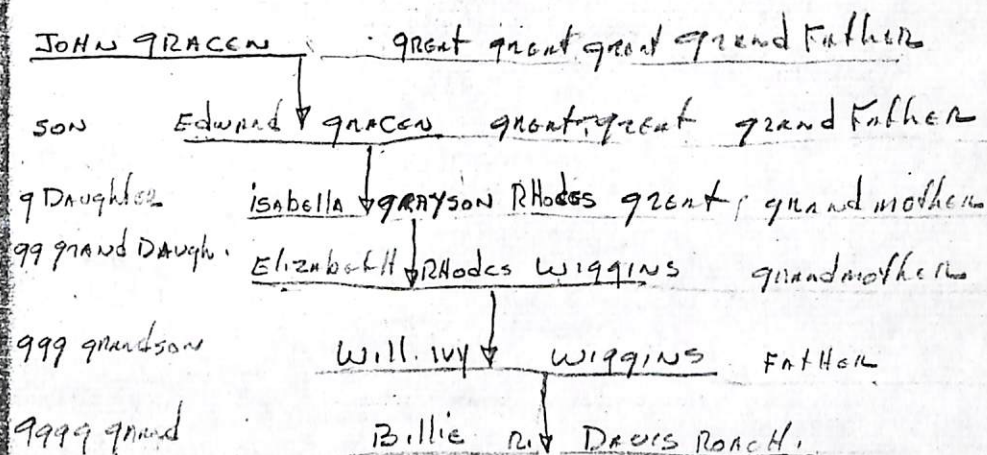 JOHN GRACEN great great great grand Father
SON Edward GRACEN great, great grand Father
g Daughter isabella GRAYSON RHodes great, grandmother
gg grand Daugh. ElizabetH RHodes WIGGINS grandmother
ggg grandson Will. ivy WIGGINS FATHER
gggg grand Billie R. DAVIS ROACH.